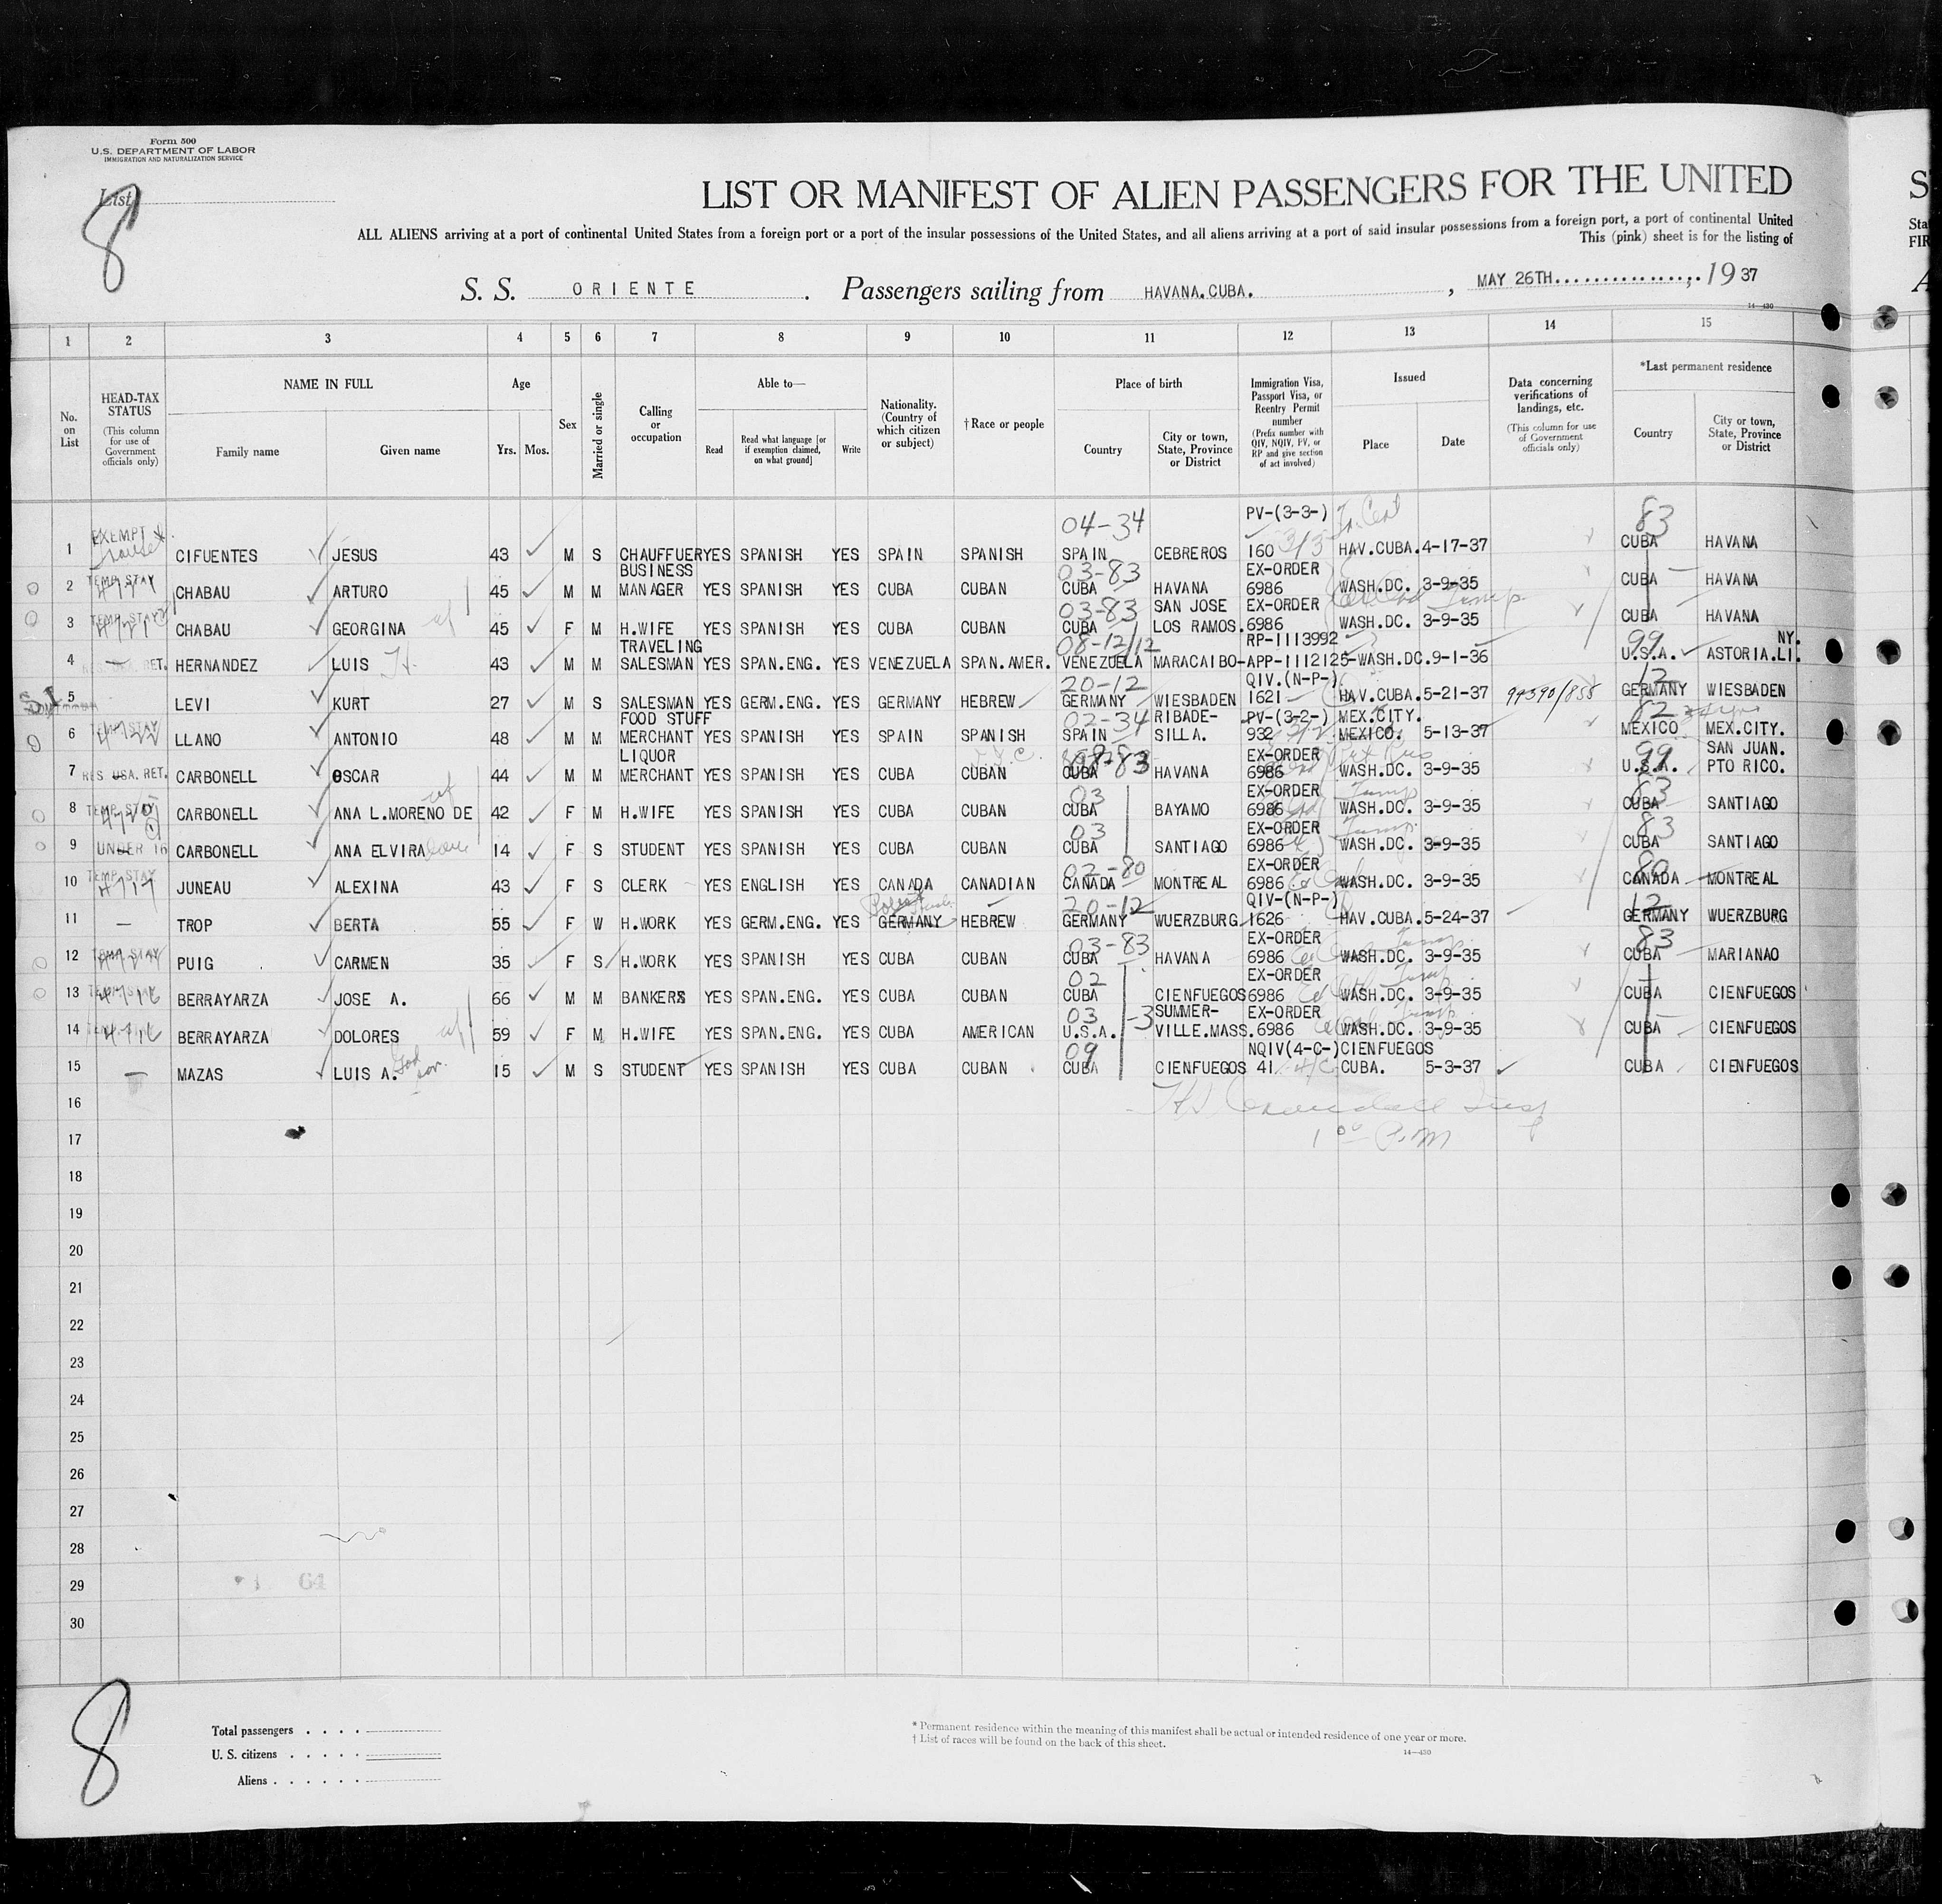 Form 500
U.S. DEPARTMENT OF LABOR
IMMIGRATION AND NATURALIZATION SERVICE
List
8
LIST OR MANIFEST OF ALIEN PASSENGERS FOR THE UNITED
ALL ALIENS arriving at a port of continental United States from a foreign port or a port of the insular possessions of the United States, and all aliens arriving at a port of said insular possessions from a foreign port, a port of continental United
This (pink) sheet is for the listing of
S. S. ORIENTE . Passengers sailing from HAVANA.CUBA. , MAY 26TH................, 19 37
14—430
1 2 3 4 5 6 7 8 9 10 11 12 13 14 15
No. on List
HEAD-TAX STATUS (This column for use of Government officials only)
NAME IN FULL
Family name Given name
Age
Yrs. Mos.
Sex
Married or single
Calling or occupation
Able to—
Read Read what language [or if exemption claimed, on what ground] Write
Nationality. (Country of which citizen or subject)
†Race or people
Place of birth
Country City or town, State, Province or District
Immigration Visa, Passport Visa, or Reentry Permit number (Prefix number with QIV, NQIV, PV, or RP and give section of act involved)
Issued
Place Date
Data concerning verifications of landings, etc. (This column for use of Government officials only)
*Last permanent residence
Country City or town, State, Province or District
04-34 PV-(3-3-) 83
1 EXEMPT CIFUENTES JESUS 43 M S CHAUFFUER YES SPANISH YES SPAIN SPANISH SPAIN CEBREROS 160 3/3 HAV.CUBA. 4-17-37 CUBA HAVANA
BUSINESS 03-83 EX-ORDER
2 TEMP. STAY CHABAU ARTURO 45 M M MANAGER YES SPANISH YES CUBA CUBAN CUBA HAVANA 6986 WASH.DC. 3-9-35 CUBA HAVANA
03-83 SAN JOSE EX-ORDER
3 TEMP. STAY CHABAU GEORGINA wf 45 F M H.WIFE YES SPANISH YES CUBA CUBAN CUBA LOS RAMOS. 6986 WASH.DC. 3-9-35 CUBA HAVANA
TRAVELING 08-12/12 RP-1113992 99 NY.
4 RET. HERNANDEZ LUIS H. 43 M M SALESMAN YES SPAN.ENG. YES VENEZUELA SPAN.AMER. VENEZUELA MARACAIBO-APP-1112125-WASH.DC. 9-1-36 U.S.A. ASTORIA.LI.
20-12 QIV.(N-P-) 12
5 LEVI KURT 27 M S SALESMAN YES GERM.ENG. YES GERMANY HEBREW GERMANY WIESBADEN 1621 HAV.CUBA. 5-21-37 99590/858 GERMANY WIESBADEN
FOOD STUFF 02-34 RIBADE- PV-(3-2-) MEX.CITY. 82
6 TEMP. STAY LLANO ANTONIO 48 M M MERCHANT YES SPANISH YES SPAIN SPANISH SPAIN SILLA. 932 MEXICO. 5-13-37 MEXICO MEX.CITY.
LIQUOR EX-ORDER 99 SAN JUAN.
7 RES. USA. RET. CARBONELL OSCAR 44 M M MERCHANT YES SPANISH YES CUBA CUBAN CUBA HAVANA 6986 WASH.DC. 3-9-35 U.S.A. PTO RICO.
03 EX-ORDER 83
8 TEMP. STAY CARBONELL ANA L.MORENO DE wf 42 F M H.WIFE YES SPANISH YES CUBA CUBAN CUBA BAYAMO 6986 WASH.DC. 3-9-35 CUBA SANTIAGO
03 EX-ORDER 83
9 UNDER 16 CARBONELL ANA ELVIRA 14 F S STUDENT YES SPANISH YES CUBA CUBAN CUBA SANTIAGO 6986 WASH.DC. 3-9-35 CUBA SANTIAGO
02-80 EX-ORDER 80
10 TEMP. STAY JUNEAU ALEXINA 43 F S CLERK YES ENGLISH YES CANADA CANADIAN CANADA MONTREAL 6986 WASH.DC. 3-9-35 CANADA MONTREAL
20-12 QIV-(N-P-) 12
11 — TROP BERTA 55 F W H.WORK YES GERM.ENG. YES GERMANY HEBREW GERMANY WUERZBURG 1626 HAV.CUBA. 5-24-37 GERMANY WUERZBURG
03-83 EX-ORDER 83
12 TEMP. STAY PUIG CARMEN 35 F S H.WORK YES SPANISH YES CUBA CUBAN CUBA HAVANA 6986 WASH.DC. 3-9-35 CUBA MARIANAO
02 EX-ORDER
13 BERRAYARZA JOSE A. 66 M M BANKERS YES SPAN.ENG. YES CUBA CUBAN CUBA CIENFUEGOS 6986 WASH.DC. 3-9-35 CUBA CIENFUEGOS
03 -3 SUMMER- EX-ORDER
14 BERRAYARZA DOLORES wf 59 F M H.WIFE YES SPAN.ENG. YES CUBA AMERICAN U.S.A. VILLE.MASS. 6986 WASH.DC. 3-9-35 CUBA CIENFUEGOS
09 NQIV(4-C-) CIENFUEGOS
15 — MAZAS LUIS A. God son. 15 M S STUDENT YES SPANISH YES CUBA CUBAN CUBA CIENFUEGOS 41 4/C CUBA. 5-3-37 CUBA CIENFUEGOS
16
1 00 P.M
17
18
19
20
21
22
23
24
25
26
27
28
29 64
30
8
Total passengers . . . .
U. S. citizens . . . . .
Aliens . . . . . .
* Permanent residence within the meaning of this manifest shall be actual or intended residence of one year or more.
† List of races will be found on the back of this sheet.
14—430